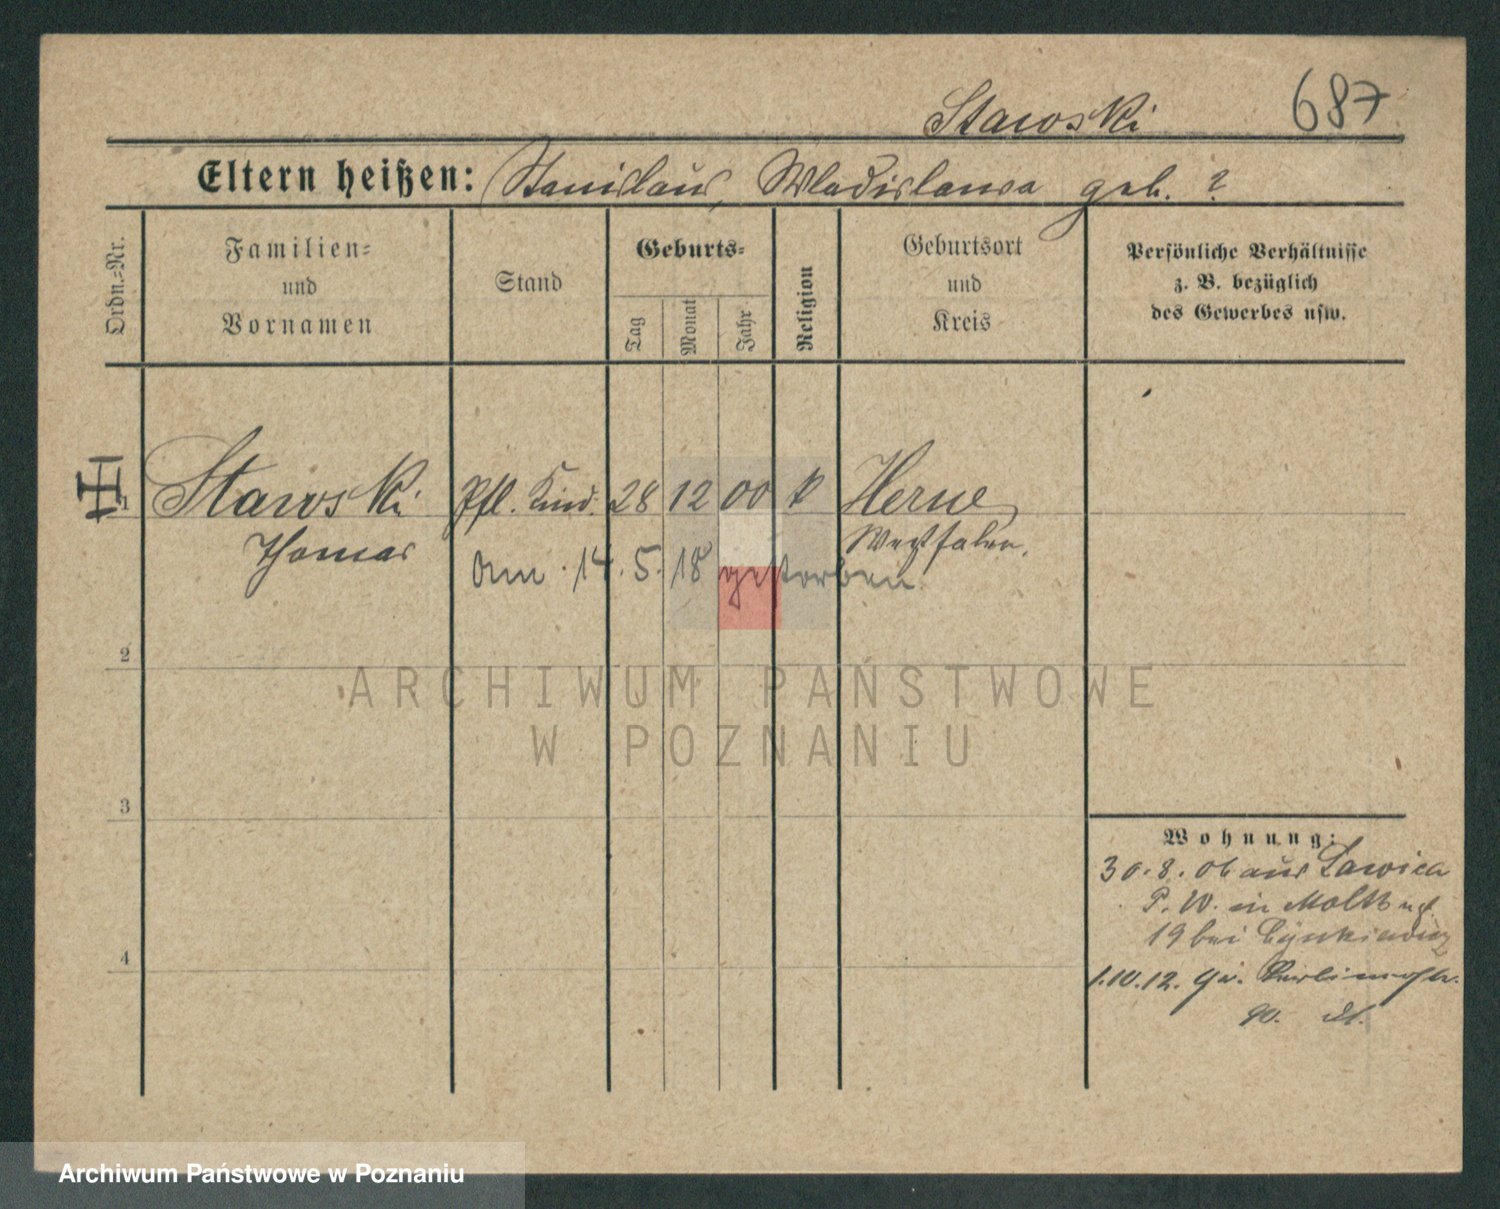 Stawski 687
Eltern heißen: Stanislaus, Wladislawa geb. ?
Ordn.-Nr.
Familien-
und
Vornamen
Stand
Geburts-
Tag
Monat
Jahr
Religion
Geburtsort
und
Kreis
Persönliche Verhältnisse
z. B. bezüglich
des Gewerbes usw.
1 Stawski Pfl. Kind. 28 12 00 k Herne
Thomas Westfalen.
Am 14.5.18 gestorben.
2
ARCHIWUM PAŃSTWOWE
W POZNANIU
3
Wohnung:
30.8.06 aus Lawica
P. W. in
19 bei
4
1.10.12.
90.
Archiwum Państwowe w Poznaniu